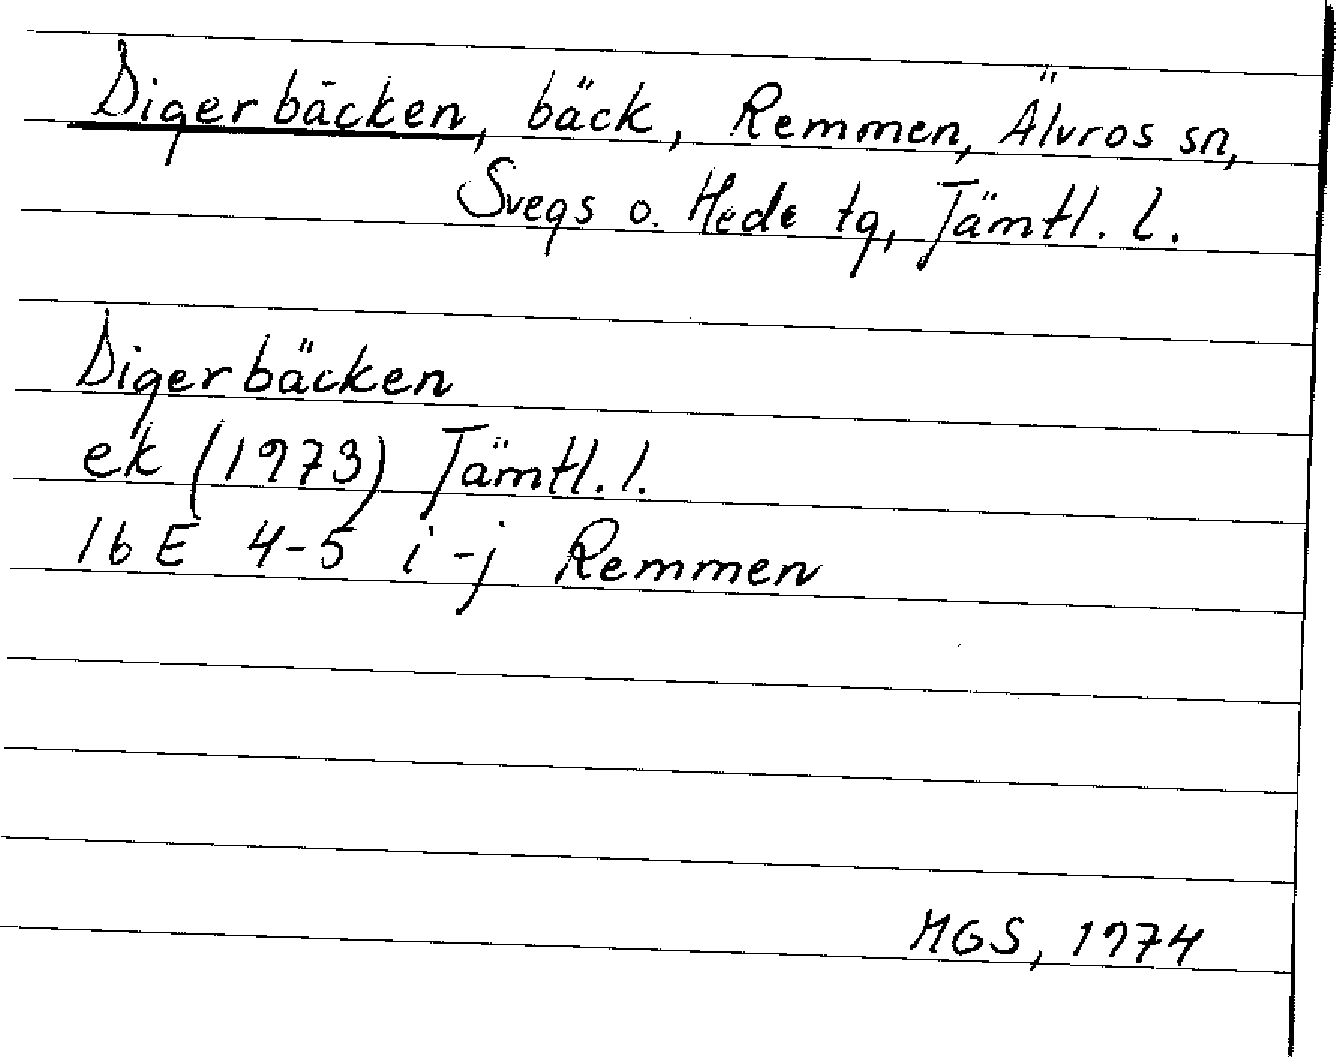 Digerbäcken, bäck, Remmen, Älvros sn,
Svegs o. Hede tg, Jämtl. l.
Digerbäcken
ek (1973) Jämtl. l.
16 E 4-5 i-j Remmen
MGS, 1974